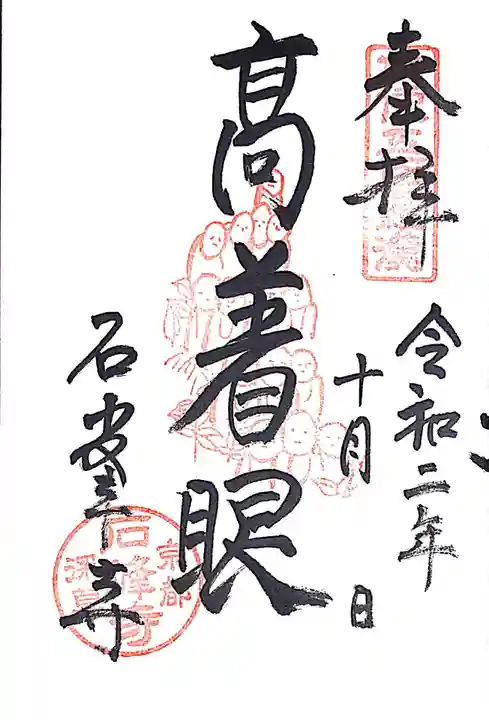 奉拝
令和二年
十月 日
高着眼
石峰寺
京都
石峰寺
深草